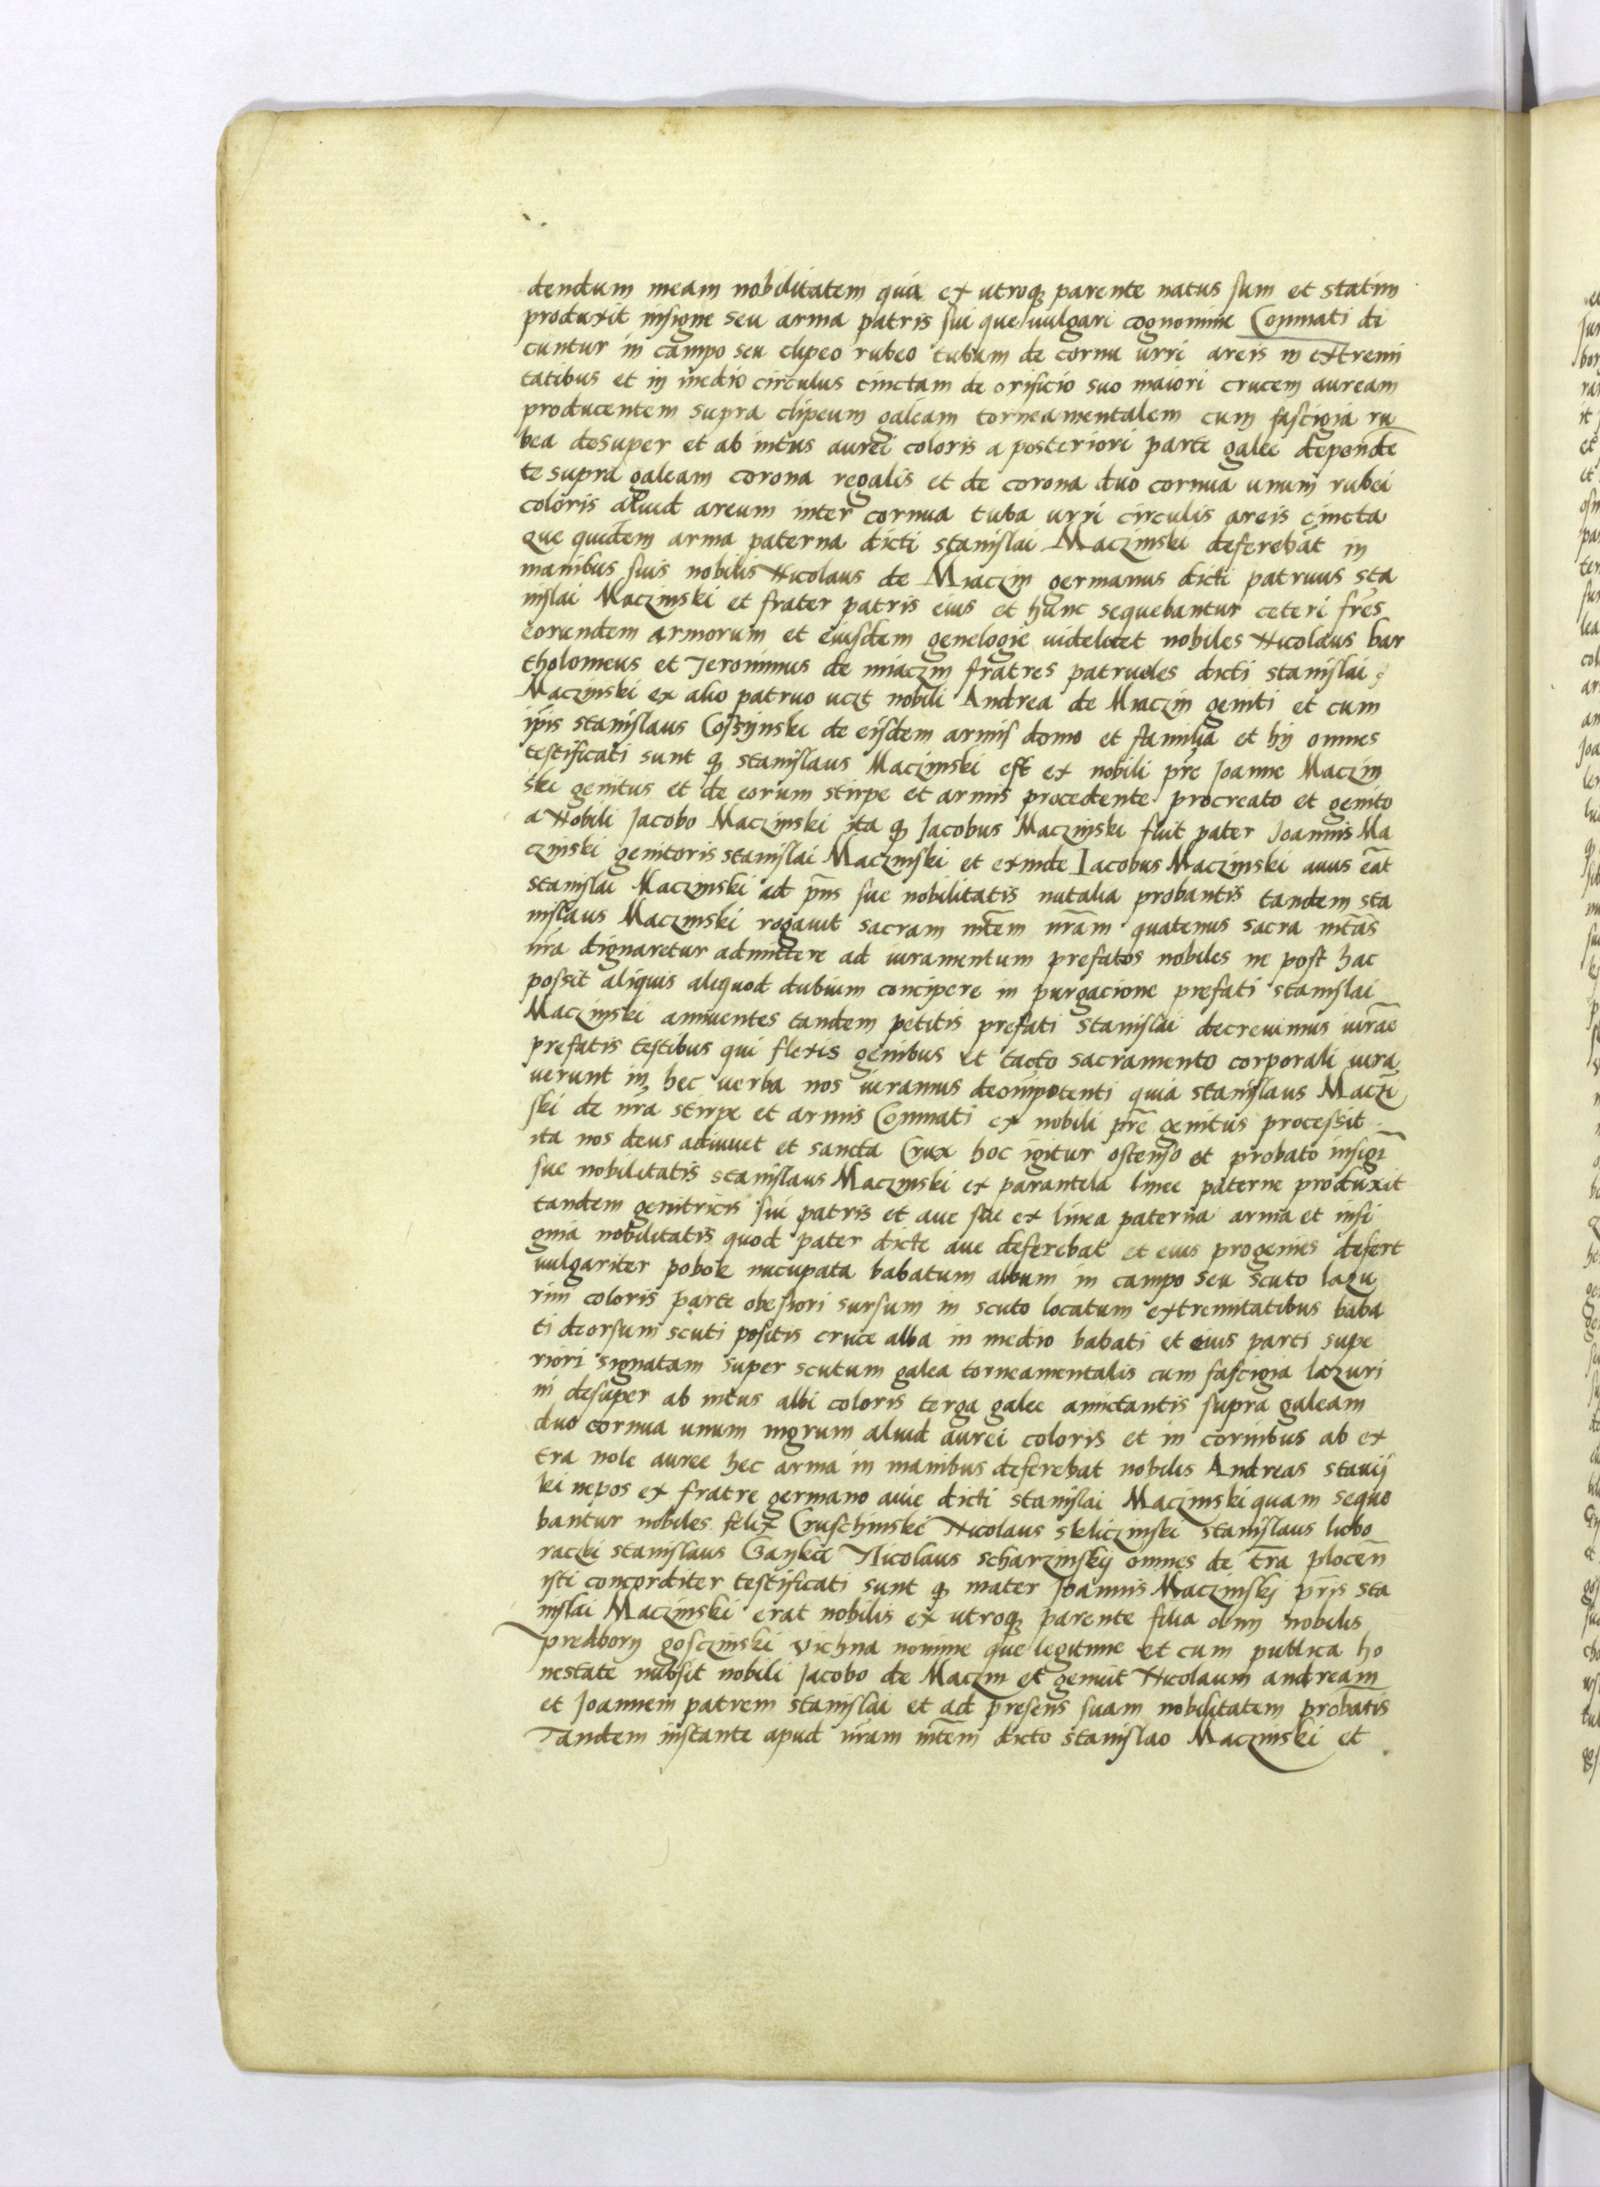 dendum meam nobilitatem quia ex utroq; parente natus sum et statim
produxit insigne seu arma patris sui que uulgari cognomine Conmati di
cuntur in campo seu clipeo rubeo tubam de cornu urri areis in extremi
tatibus et in medio circulus cinctam de orificio suo maiori crucem auream
producentem supra clipeum galeam torneamentalem cum fascigia ru
bea desuper et ab intus aurei coloris a posteriori parte galee depende
te supra galeam corona regalis et de corona duo cornua unum rubei
coloris aliud areum inter cornua tuba urri circulis areis cincta
que quidem arma paterna dicti stanislai Maczinski deferebat in
manibus suis nobilis Nicolaus de Miaczin germanus dicti patruus sta
nislai Maczinski et frater patris eius et hunc sequebantur ceteri fr̃es
eorundem armorum et eiusdem genelogie uidelicet nobiles Nicolaus bar
tholomeus et Jeronimus de miaczin fratres patrueles dicti stanislai
Maczinski ex alio patruo uczt nobili Andrea de Miaczin geniti et cum
ip̃is stanislaus Cossijnski de eisdem armis domo et familia et hij omnes
testificati sunt q; stanislaus Maczinski est ex nobili pr̃e Joanne Maczin
ski genitus et de eorum stirpe et armis procedente procreato et genito
a Nobili Jacobo Maczinski ita q; Jacobus Maczinski fuit pater Joannis Ma
czinski genitoris stanislai Maczinski et exinde Jacobus Maczinski auus e͠at
stanislai Maczinski ad p̃ns sue nobilitatis natalia probantis tandem sta
nislaus Maczinski rogauit sacram mt̃em nr̃am quatenus sacra mt̃as
nr̃a dignaretur admittere ad iuramentum prefatos nobiles ne post hac
possit aliquis aliquod dubium concipere in purgacione prefati stanislai
Maczinski annuentes tandem petitis prefati stanislai decreuimus iur̃ae
prefatis testibus qui flexis genibus et tacto sacramento corporali iura
uerunt in hec uerba nos iuramus deo omĩpotenti quia stanislaus Maczĩ
ski de nr̃a stirpe et armis Conmati ex nobili pr̃e genitus processit
ita nos deus adiuuet et sancta Crux hoc igitur ostenso et probato insigĩ
sue nobilitatis stanislaus Maczinski ex parantela linee paterne produxit
tandem genitricis sui patris et aue sue ex linea paterna arma et insi
gnia nobilitatis quod pater dicte aue deferebat et eius progenies defert
uulgariter pobok nucupata babatum album in campo seu scuto lazu
rini coloris parte obesiori sursum in scuto locatum extremitatibus baba
ti deorsum scuti positis cruce alba in medio babati et eius parti supe
riori signatam super scutum galea torneamentalis cum fascigia lazuri
ni desuper ab intus albi coloris terga galee amictantis supra galeam
duo cornua unum nigrum aliud aurei coloris et in cornibus ab ex
tra nole auree hec arma in manibus deferebat nobilis Andreas stauij
ki nepos ex fratre germano auie dicti stanislai Maczinski quam seque
bantur nobiles felix Gruschinski Nicolaus skliczinski stanislaus lubo
raczki stanislaus Gayka Nicolaus scharzinskij omnes de tr̃a plocen̄
isti concorditer testificati sunt q; mater Joannis Maczinskj pr̃is sta
nislai Maczinski erat nobilis ex utroq; parente filia olim nobilis
predborij gosczinski vichna nomine que legitime et cum publica ho
nestate nubsit nobili Jacobo de Maczin et genuit Nicolaum andream
et Joannem patrem stanislai et ad presens suam nobilitatem probatis
Tandem instante apud nr̃am mt̃em dicto stanislao Maczinski et